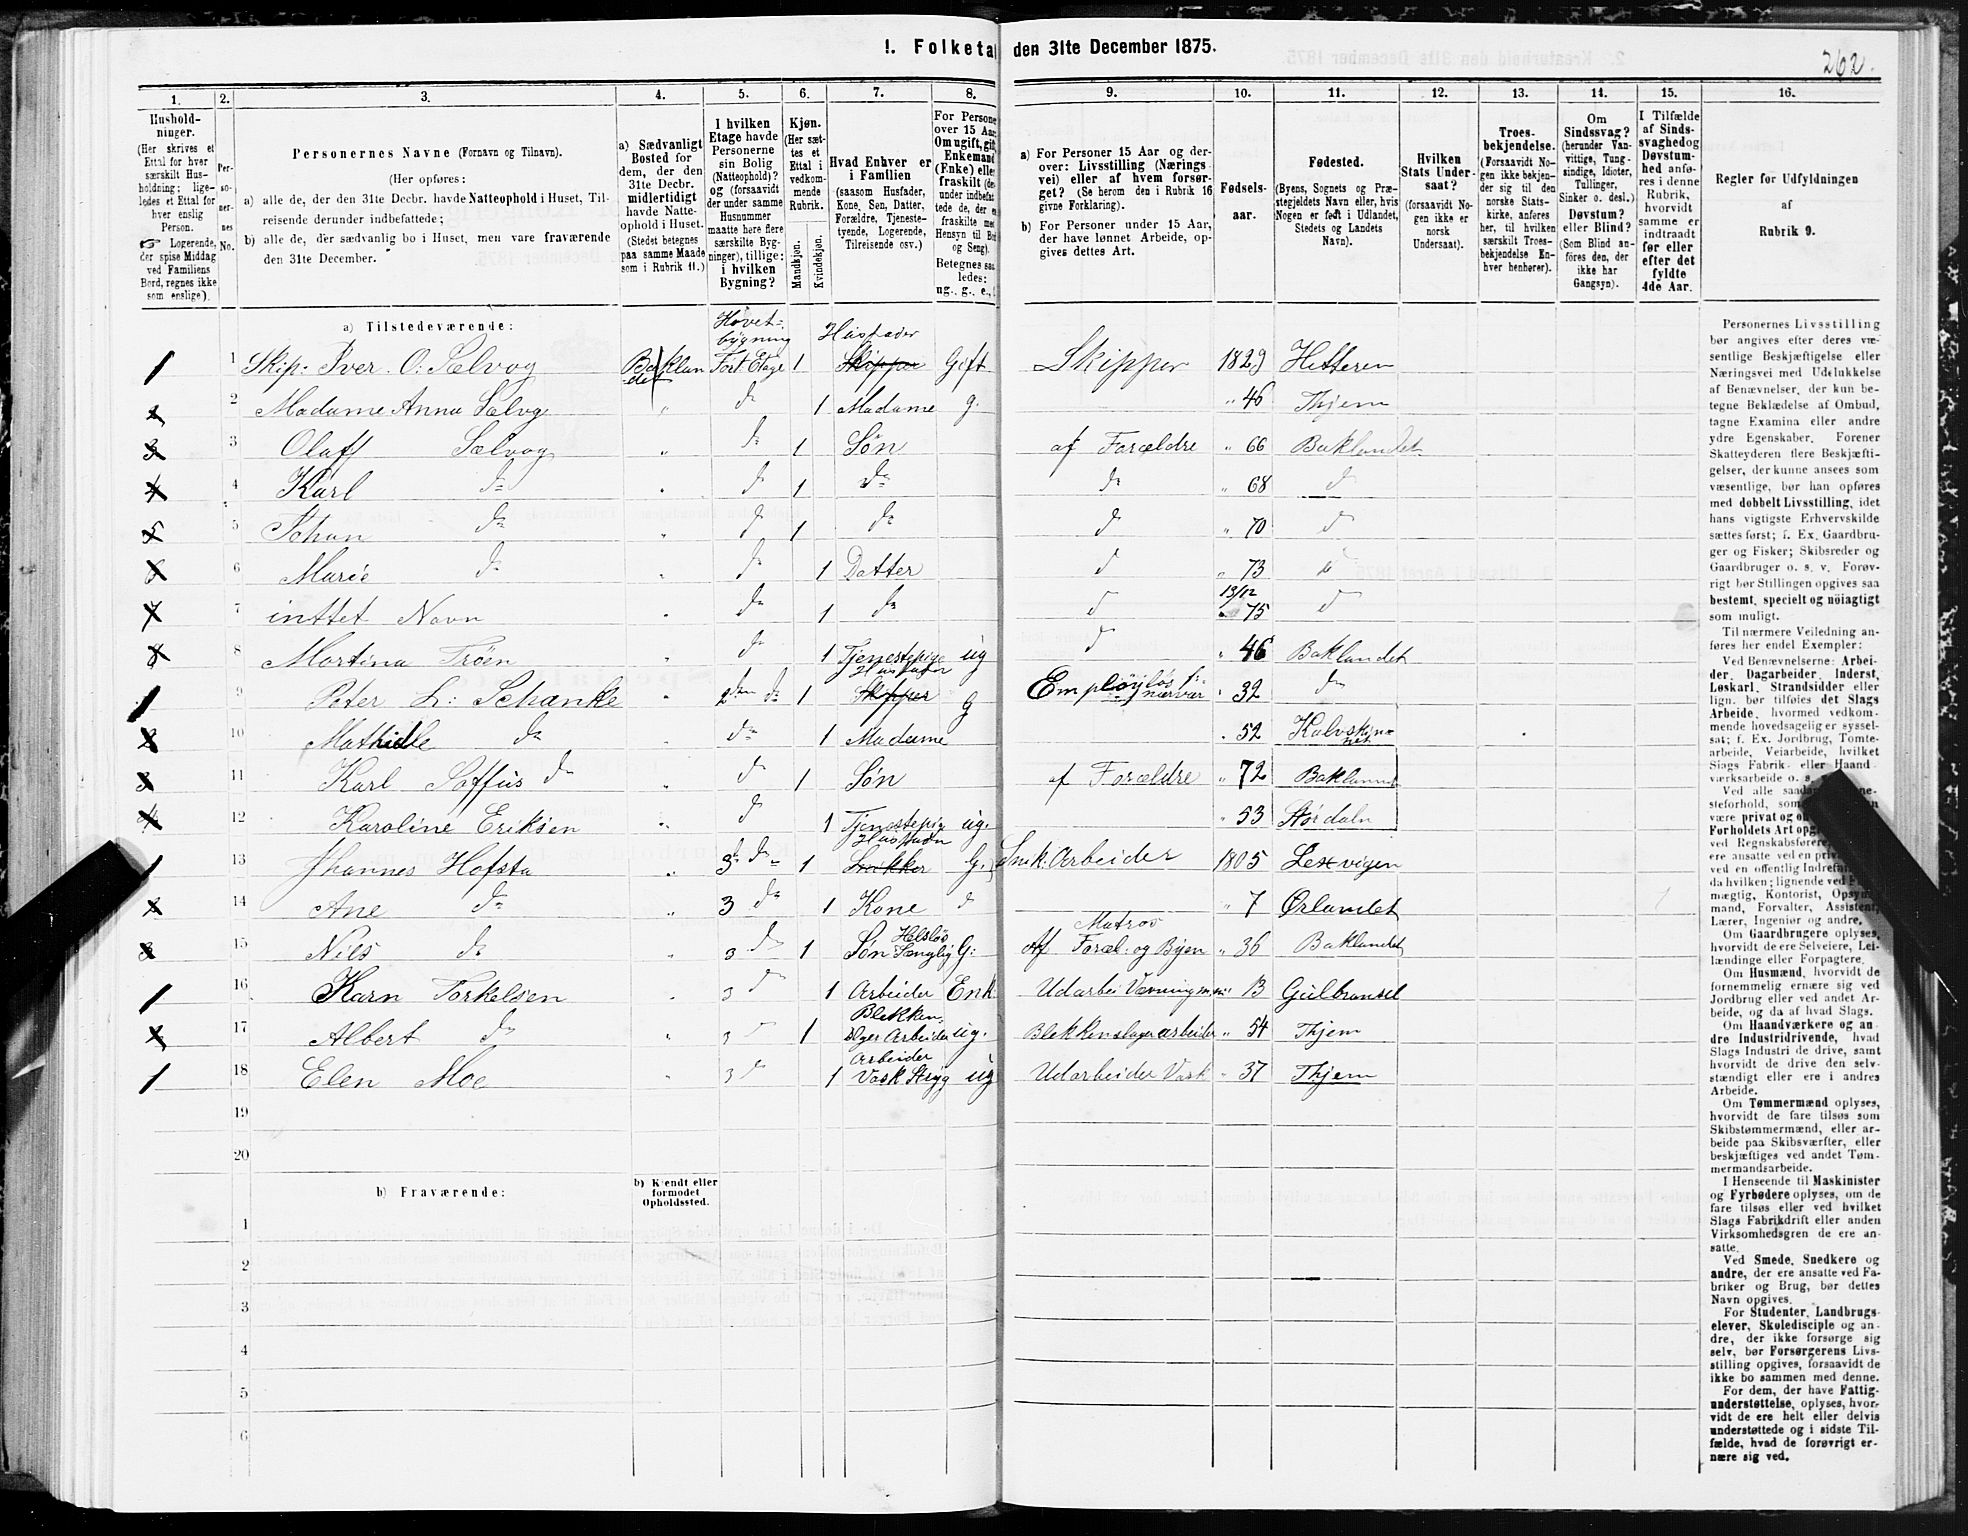 1. Folketal den 31te December 1875.
262.
1. 2. 3. 4. 5. 6. 7. 8. 9. 10. 11. 12. 13. 14. 15. 16.
Husholdninger. (Her skrives et Ettal for hver særskilt Husholdning; ligeledes et Ettal for hver enslig Person. Logerende, der spise Middag ved Familiens Bord, regnes ikke som enslige).
Personernes No.
Personernes Navne (Fornavn og Tilnavn).
(Her opføres:
a) alle de, der den 31te Decbr. havde Natteophold i Huset, Tilreisende derunder indbefattede;
b) alle de, der sædvanlig bo i Huset, men vare fraværende den 31te December.
a) Sædvanligt Bosted for dem, der den 31te Decbr. midlertidigt havde Natteophold i Huset. (Stedet betegnes paa samme Maade som i Rubrik 11.)
I hvilken Etage havde Personerne sin Bolig (Natteophold)? og (forsaavidt der under samme Husnummer maatte høre flere særskilte Bygninger), tillige: i hvilken Bygning?
Kjøn. (Her sættes et Ettal i vedkommende Rubrik.
Mandkjøn. Kvindekjøn.
Hvad Enhver er i Familien (saasom Husfader, Kone, Søn, Datter, Forældre, Tjenestetyende, Logerende, Tilreisende osv.)
For Persone over 15 Aar Om ugift, gift Enkemand (Enke) elle fraskilt (de under indbefat tede de, der e fraskilte med Hensyn til Bo og Seng). Betegnes saaledes: ug., g., e.,
a) For Personer 15 Aar og derover: Livsstilling (Næringsvei) eller af hvem forsørget? (Se herom den i Rubrik 16 givne Forklaring).
b) For Personer under 15 Aar, der have lønnet Arbeide, opgives dettes Art.
Fødselsaar.
Fødested. (Byens, Sognets og Præstegjeldets Navn eller, hvis Nogen er født i Udlandet, Stedets og Landets Navn).
Hvilken Stats Undersaat? (forsaavidt Nogen ikke er norsk Undersaat).
Troesbekjendelse. (Forsaavidt Nogen ikke bekjender sig til den norske Statskirke, anføres her, til hvilken særskilt Troesbekjendelse Enhver henhører).
Om Sindssvag? (herunder Vanvittige, Tungsindige, Idioter, Tullinger, Sinker o. desl.) Døvstum? eller Blind? (Som Blind anføres den, der ikke har Gangsyn).
I Tilfælde af Sindssvaghed og Døvstumhed anføres i denne Rubrik, hvorvidt samme er indtraadt før eller efter det fyldte 4de Aar.
Regler for Udfyldningen af Rubrik 9.
a) Tilstedeværende:
Hovetbygning
1 1 Skip: Iver O: Sælvog Baklandet Ført: Etage 1 Husfader Skipper Gift Skipper 1829 Hitteren
2 2 Madame Anna Sælvog " dr 1 Madame g. " 46 Thjem
3 3 Olaff Sælvog " dr 1 Søn af Forældre " 66 Baklandet
4 4 Karl dr " d 1 dr dr " 68 d
5 5 Johan dr " d 1 dr d " 70 d
6 6 Marie dr " dr 1 Datter d " 73 d
7 7 inttet Navn " dr 1 dr d 13/12 75 d
8 8 Martina Trøen " dr 1 Tjenestepige ug d " 46 Baklandet
1 9 Peter L: Schanke " 2den dr 1 Husfader Skipper G 32 dr
2 10 Mathilde dr " dr 1 Madame " 52 Kalvskinnet
3 11 Karl Soffus dr " dr 1 Søn af Forældre " 72 Baklandet
4 12 Karoline Eriksen " d 1 Tjenestepig ug. " 53 Størdaln
1 13 Jhannes Hofsta " 3 dr 1 Snikker G. Snek: Arbeider 1805 Lexvigen
2 14 Ane dr " 3 dr 1 Kone d " 7 Ørlandet
3 15 Nils dr " 3 d 1 Søn Helsløs Sænglig G: Matros Af Foræl: og Byen " 36 Baklandet
1 16 Karn Torkelsen " 3 d 1 Arbeider Enk: " 13
2 17 Albert dr " 3 1 Blekkenslager Arbeider ug. Blekkenslagerarbeider " 54 Thjem
1 18 Elen Moe " 3 d 1 Arbeider Vask Stryg ug Udarbeider Vask " 37 Thjem
19
20
b) Fraværende:
b) Kjendt eller formodet Opholdssted.
1
2
3
4
5
6
Personernes Livsstilling
bør angives efter deres væ-
sentlige Beskjæftigelse eller
Næringsvei med Udelukkelse
af Benævnelser, der kun be-
tegne Beklædelse af Ombud,
tagne Examina eller andre
ydre Egenskaber. Forener
Skatteyderen flere Beskjæfti-
gelser, der kunne ansees som
væsentlige, bør han opføres
med dobbelt Livsstilling, idet
hans vigtigste Erhvervskilde
sættes først; f. Ex. Gaardbru-
ger og Fisker; Skibsreder og
Gaardbruger o. s. v. Forøv-
rigt bør Stillingen opgives saa
bestemt, specielt og nöiagtigt
som muligt.
Til nærmere Veiledning an-
føres her endel Exempler:
Ved Benævnelserne: Arbei-
der, Dagarbeider, Inderst,
Løskarl, Strandsidder eller
lign. bør tilføies det Slags
Arbeide, hvormed vedkom-
mende hovedsagelig er syssel-
sat; f. Ex. Jordbrug, Tomte-
arbeide, Veiarbeide, hvilket
Slags Fabrik- eller Haand-
værksarbeide o. s.
Ved alle
steforhold, som
være privat og
Forholdets Art
ved Regnskabsførere,
ere ansatte ved en
ved en offentlig
da hvilken; lignende ved
mægtig, Kontorist,
mand, Forvalter, Assistent,
Lærer, Ingeniør og andre.
Om Gaardbrugere oplyses,
hvorvidt de ere Selveiere, Lei-
lændinge eller Forpagtere.
Om Husmænd, hvorvidt de
fornemmelig ernære sig ved
Jordbrug eller ved andet Ar-
beide, og da af hvad Slags.
Om Haandværkere og an
dre Industridrivende, hvad
Slags Industri de drive, samt
hvorvidt de drive den selv-
stændigt eller ere i andres
Arbeide.
Om Tømmermænd oplyses,
hvorvidt de fare tilsøs som
Skibstømmermænd, eller ar-
beide paa Skibsværfter, eller
beskjæftiges ved andet Tøm-
mermandsarbeide.
I Henseende til Maskinister
og Fyrbødere oplyses, om de
fare tilsøs eller ved hvilket
Slags Fabrikdrift eller anden
Virksomhedsgren de ere an-
satte.
Ved Smede, Snedkere og
andre, der ere ansatte ved Fa-
briker og Brug, bør dettes
Navn opgives.
For Studenter, Landbrugs-
elever, Skoledisciple og an-
dre, der ikke forsørge sig
selv, bør Forsørgerens Livs-
stilling opgives, forsaavidt de
ikke bo sammen med denne.
For dem, der have Fattig-
understøttelse, oplyses, hvor-
vidt de ere helt eller delvis
understøttede og i sidste Til-
fælde, hvad de forøvrigt er-
nære sig ved.